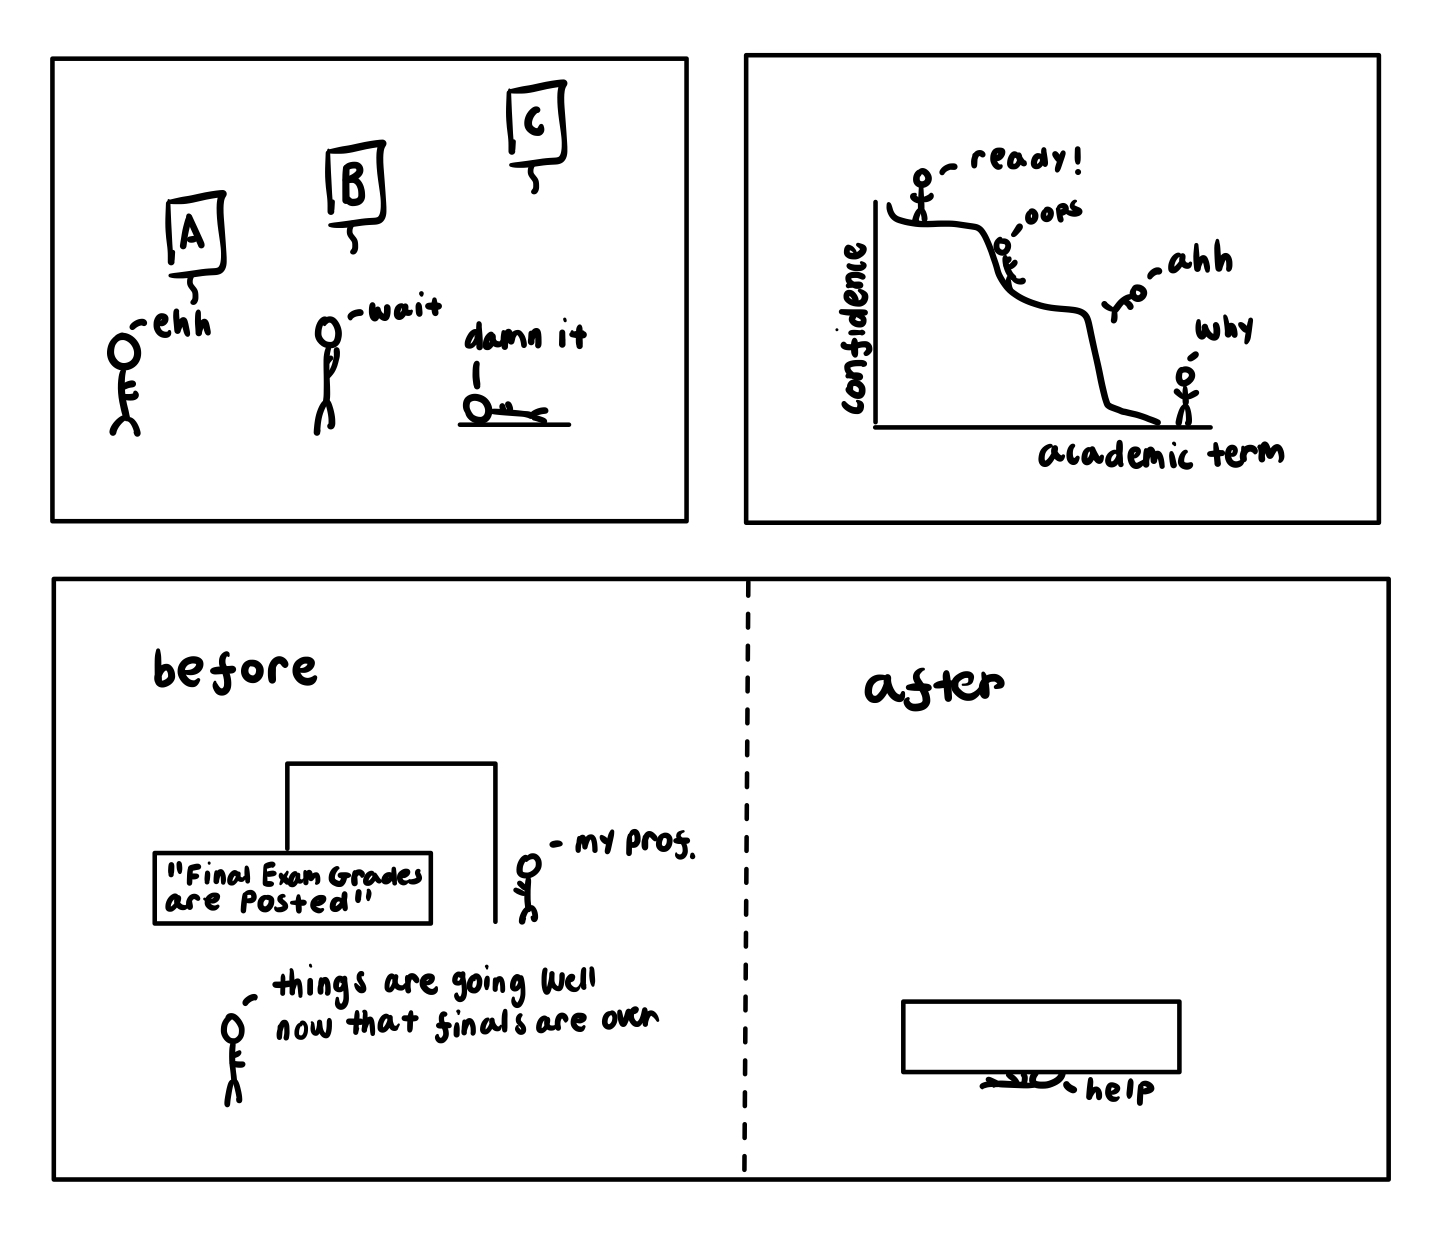 A
B
C
ehh
wait
damn it
ready!
oops
ahh
why
confidence
academic term
before
"Final Exam Grades
are Posted"
my prof.
things are going well
now that finals are over
after
help